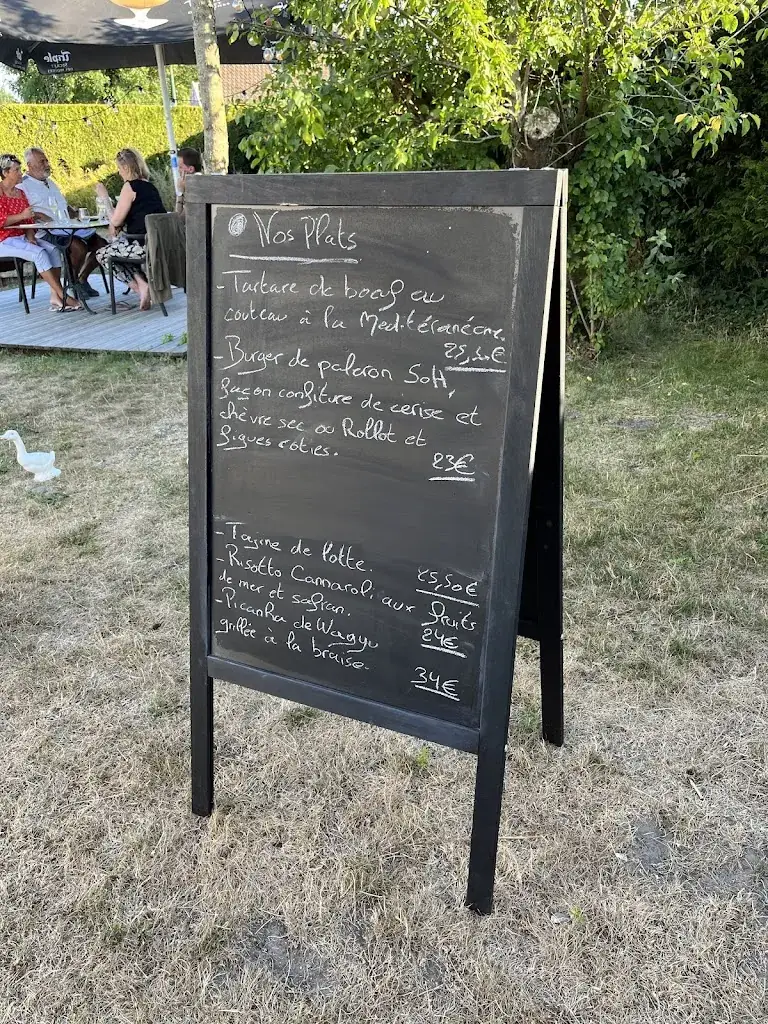 Triple
Nos Plats
- Tartare de boeuf au
couteau à la Mediterranéenne.
25,50€
- Burger de paleron 50H,
façon confiture de cerise et
chèvre sec ou Rollot et
figues roties.
23€
- Tagine de lotte.
25,50€
- Risotto Cannaroli aux fruits
de mer et safran.
24€
- Picanha de Wagyu
grillée à la braise.
34€